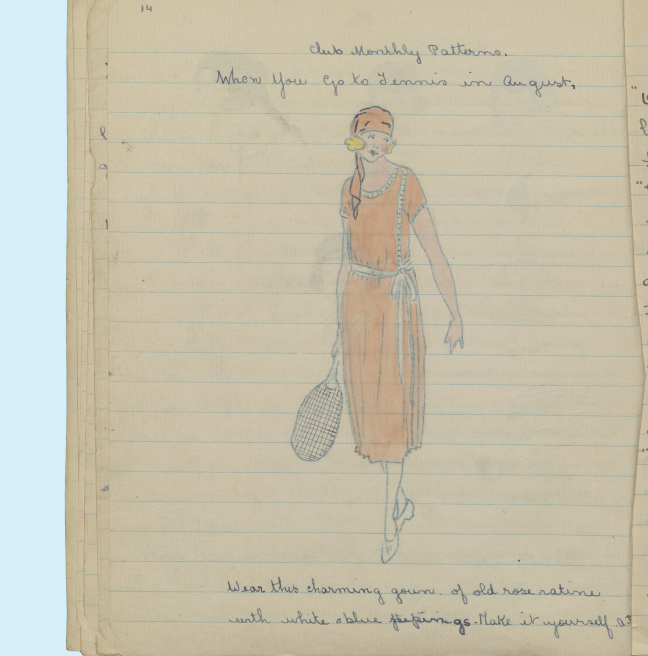 14
Club Monthly Patterns.
When You Go to Tennis in August,
Wear this charming goun. of old rose ratine
with white & blue pipings. Make it yourself